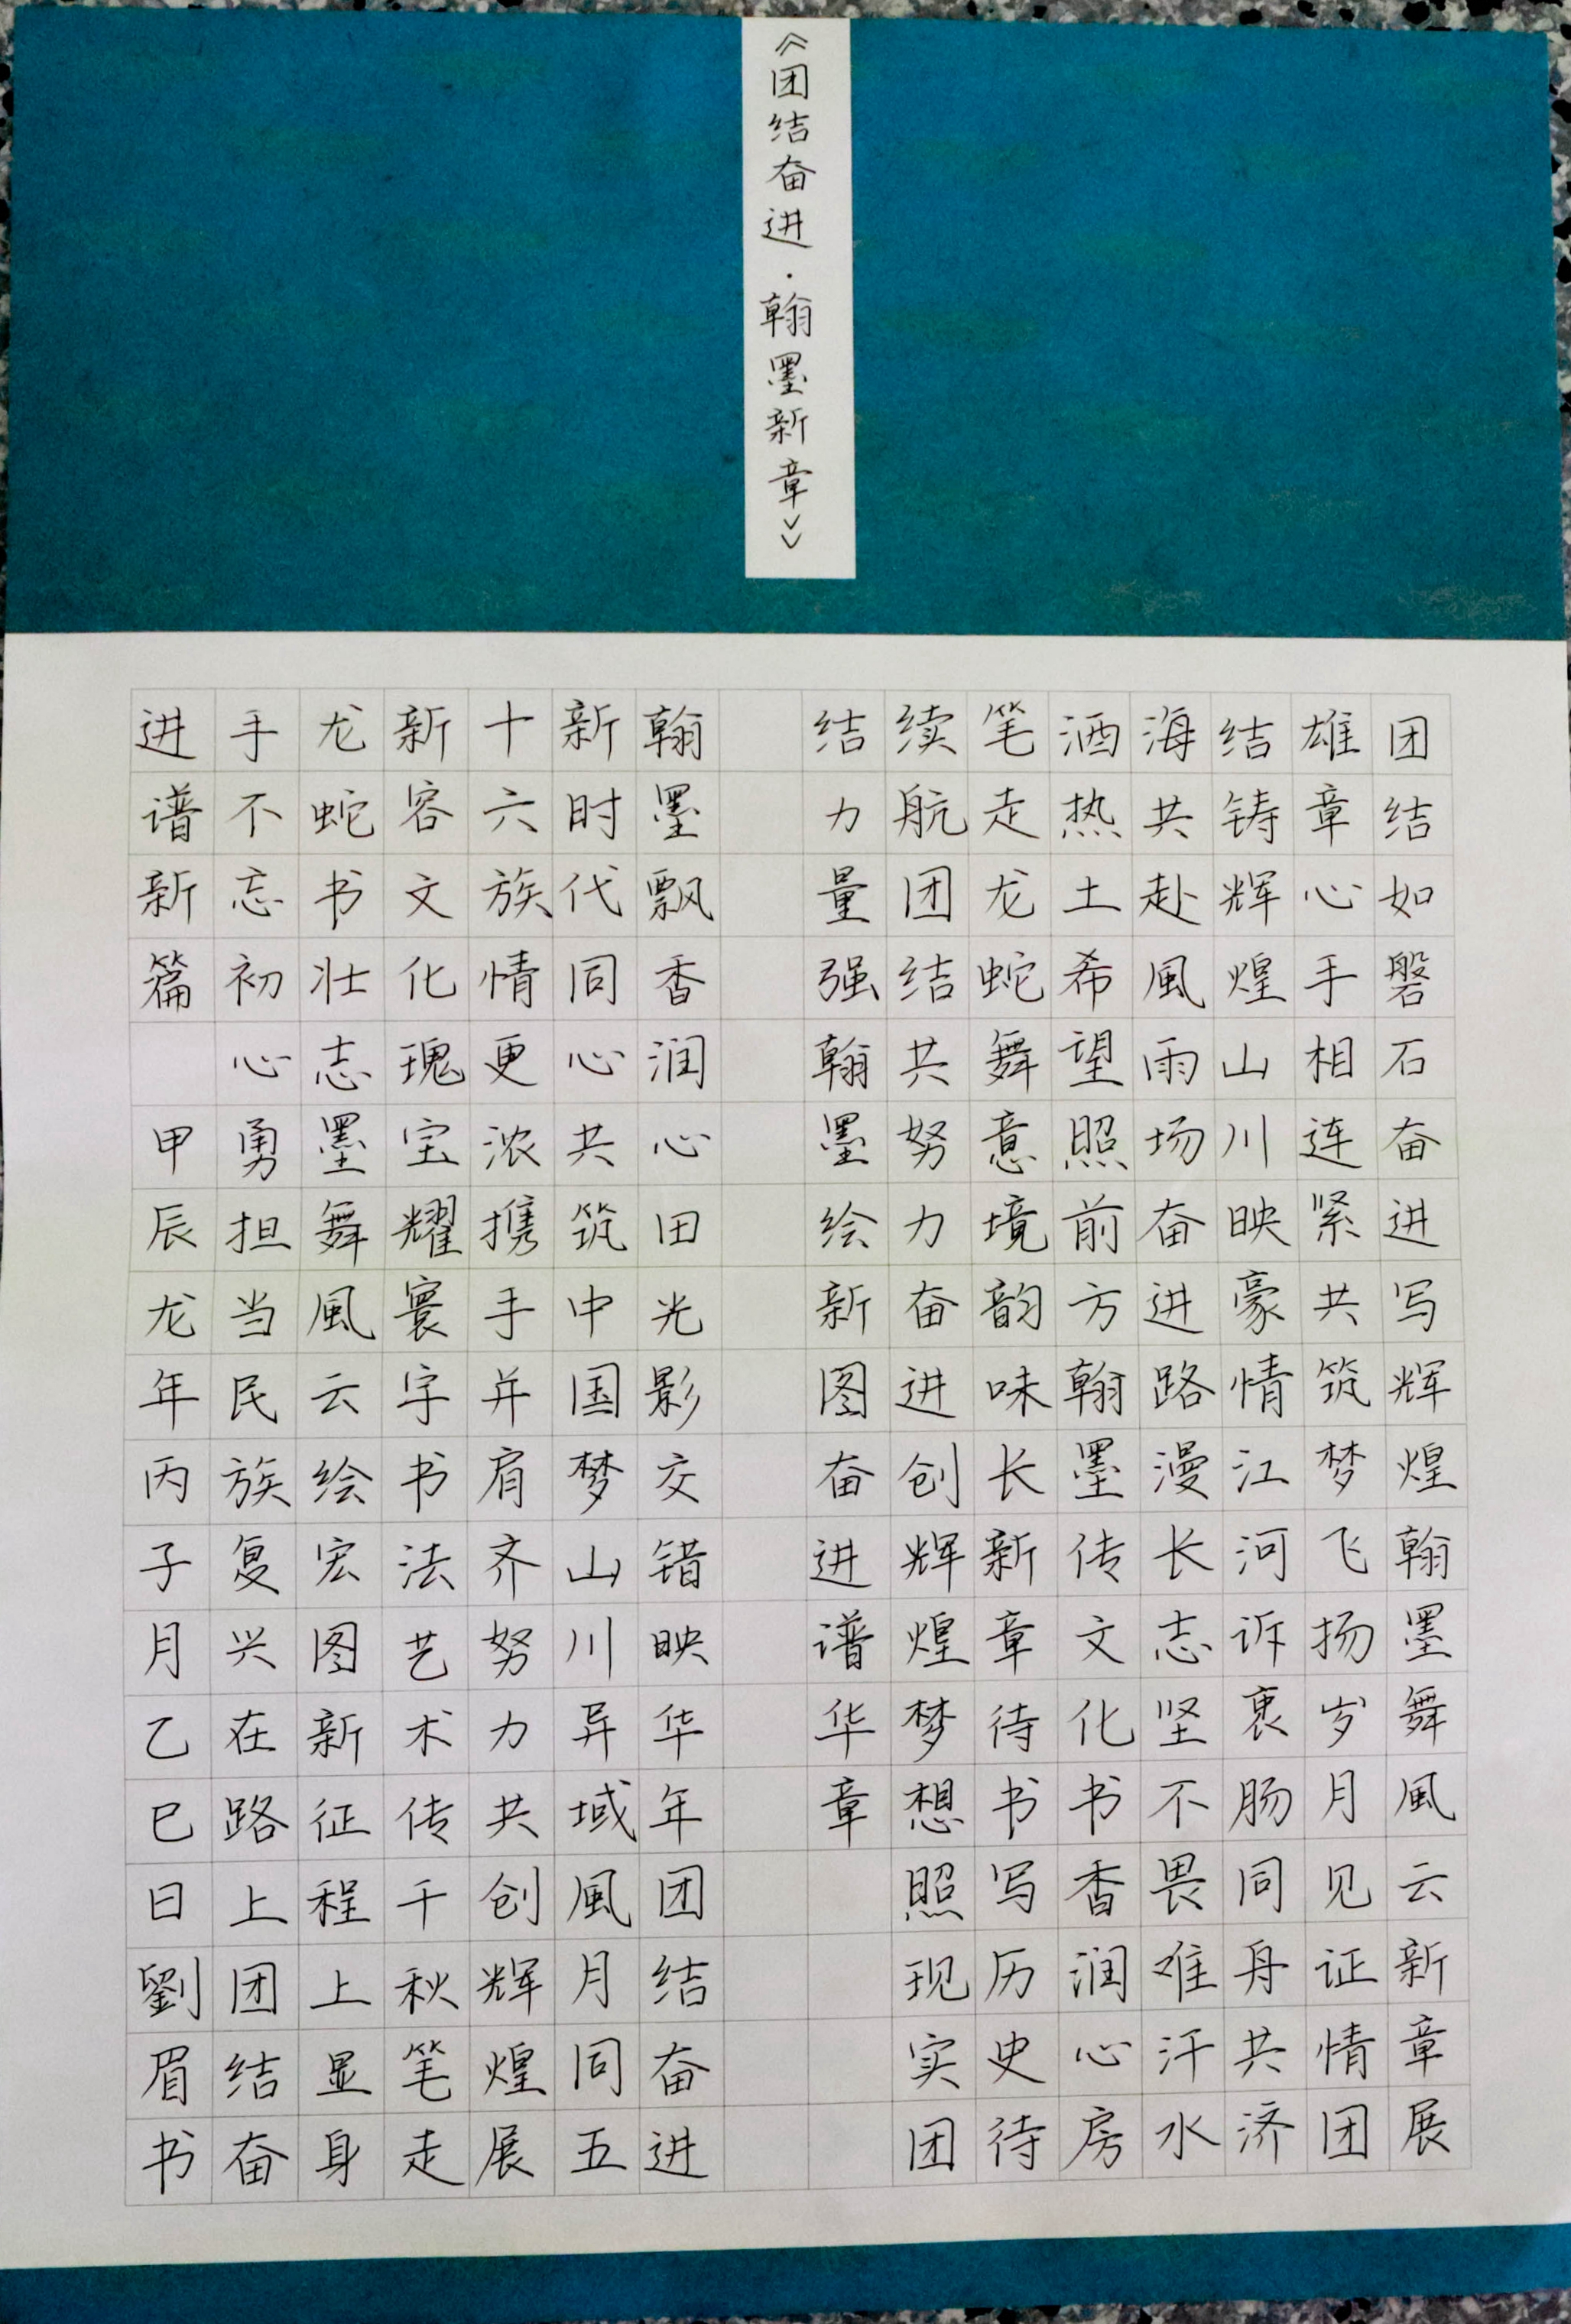 《团结奋进·翰墨新章》
团结如磐石奋进写辉煌翰墨舞風云新章展
雄章心手相连紧共筑梦飞扬岁月见证情团
结铸辉煌山川映豪情江河诉衷肠同舟共济
海共赴風雨场奋进路漫长志坚不畏难汗水
洒热土希望照前方翰墨传文化书香润心房
笔走龙蛇舞意境韵味长新章待书写历史待
续航团结共努力奋进创辉煌梦想照现实团
结力量强翰墨绘新图奋进谱华章
翰墨飘香润心田光影交错映华年团结奋进
新时代同心共筑中国梦山川异域風月同五
十六族情更浓携手并肩齐努力共创辉煌展
新容文化瑰宝耀寰宇书法艺术传千秋笔走
龙蛇书壮志墨舞風云绘宏图新征程上显身
手不忘初心勇担当民族复兴在路上团结奋
进谱新篇
甲辰龙年丙子月乙巳日劉眉书